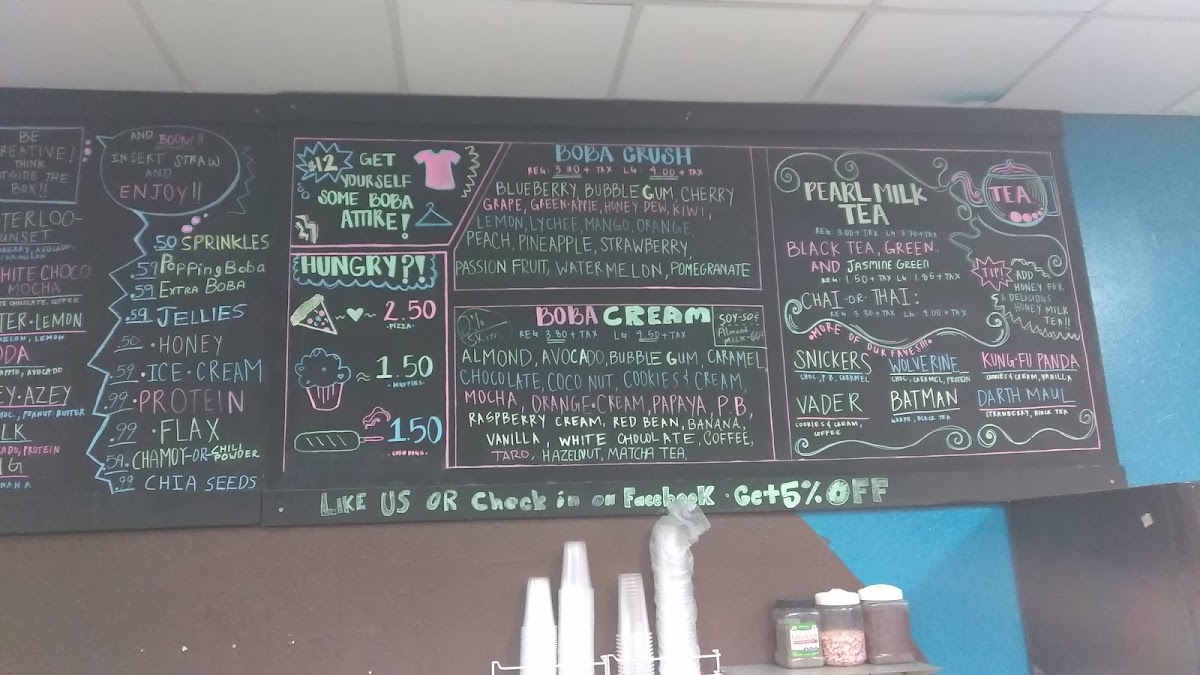 BE
CREATIVE!
THINK
OUTSIDE THE
BOX!!
WATERLOO-
SUNSET
AVOCADO,
WHITE CHOCO
MOCHA
WHITE CHOCOLATE, COFFEE
LEMON
, LEMON
AVOCADO
AZEY
CHOC, PEANUT BUTTER
PROTEIN
AND BOOM!!
INSERT STRAW
AND
ENJOY!!
.50 SPRINKLES
.59 Popping Boba
.59 EXTRA BOBA
.59 JELLIES
.50 · HONEY
.59 · ICE · CREAM
.99 · PROTEIN
.99 · FLAX
.59 · CHAMOY-OR-CHILI POWDER
.99 CHIA SEEDS
$12 GET
YOURSELF
SOME BOBA
ATTIRE!
HUNGRY?!
2.50
·PIZZA·
≈ 1.50
·MUFFINS·
1.50
·CORN DOGS·
BOBA CRUSH
REG: 3.80 + TAX LG: 4.00 + TAX
BLUEBERRY, BUBBLE GUM, CHERRY
GRAPE, GREEN·APPLE, HONEY DEW, KIWI,
LEMON, LYCHEE, MANGO, ORANGE,
PEACH, PINEAPPLE, STRAWBERRY,
PASSION FRUIT, WATERMELON, POMEGRANATE
BOBA CREAM
REG 3.80 + TAX LG 4.50 + TAX
2% SKIM
SOY-50¢
Almond
MILK-60¢
ALMOND, AVOCADO, BUBBLE GUM, CARAMEL
CHOCOLATE, COCONUT, COOKIES & CREAM,
MOCHA, ORANGE·CREAM, PAPAYA, P.B,
RASPBERRY CREAM, RED BEAN, BANANA,
VANILLA, WHITE CHOCOLATE, COFFEE,
TARO, HAZELNUT, MATCHA TEA.
PEARL MILK
TEA
REG 3.00 + TAX LG 3.70 + TAX
BLACK TEA, GREEN,
AND JASMINE GREEN
REG 1.50 + TAX LG 1.85 + TAX
CHAI -OR- THAI:
REG 3.30 + TAX LG 4.00 + TAX
TEA
TIP!
ADD
HONEY FOR
A DELICIOUS
HONEY MILK
TEA!!
MORE OF OUR FAVES!!!
SNICKERS
CHOC, P.B, CARAMEL
WOLVERINE
CHOC, CARAMEL, PROTEIN
KUNG-FU PANDA
COOKIES & CREAM, VANILLA
VADER
COOKIES & CREAM,
COFFEE
BATMAN
GRAPE, BLACK TEA
DARTH MAUL
STRAWBERRY, BLACK TEA
LIKE US OR Check in on Facebook · Get 5% OFF